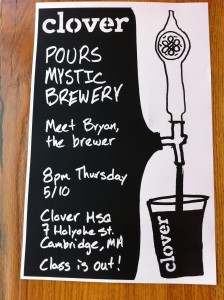 clover
POURS
MYSTIC
BREWERY
Meet Bryan,
the brewer
8pm Thursday
5/10
Clover HSQ
7 Holyoke St.
Cambridge, MA
Class is out!
clover